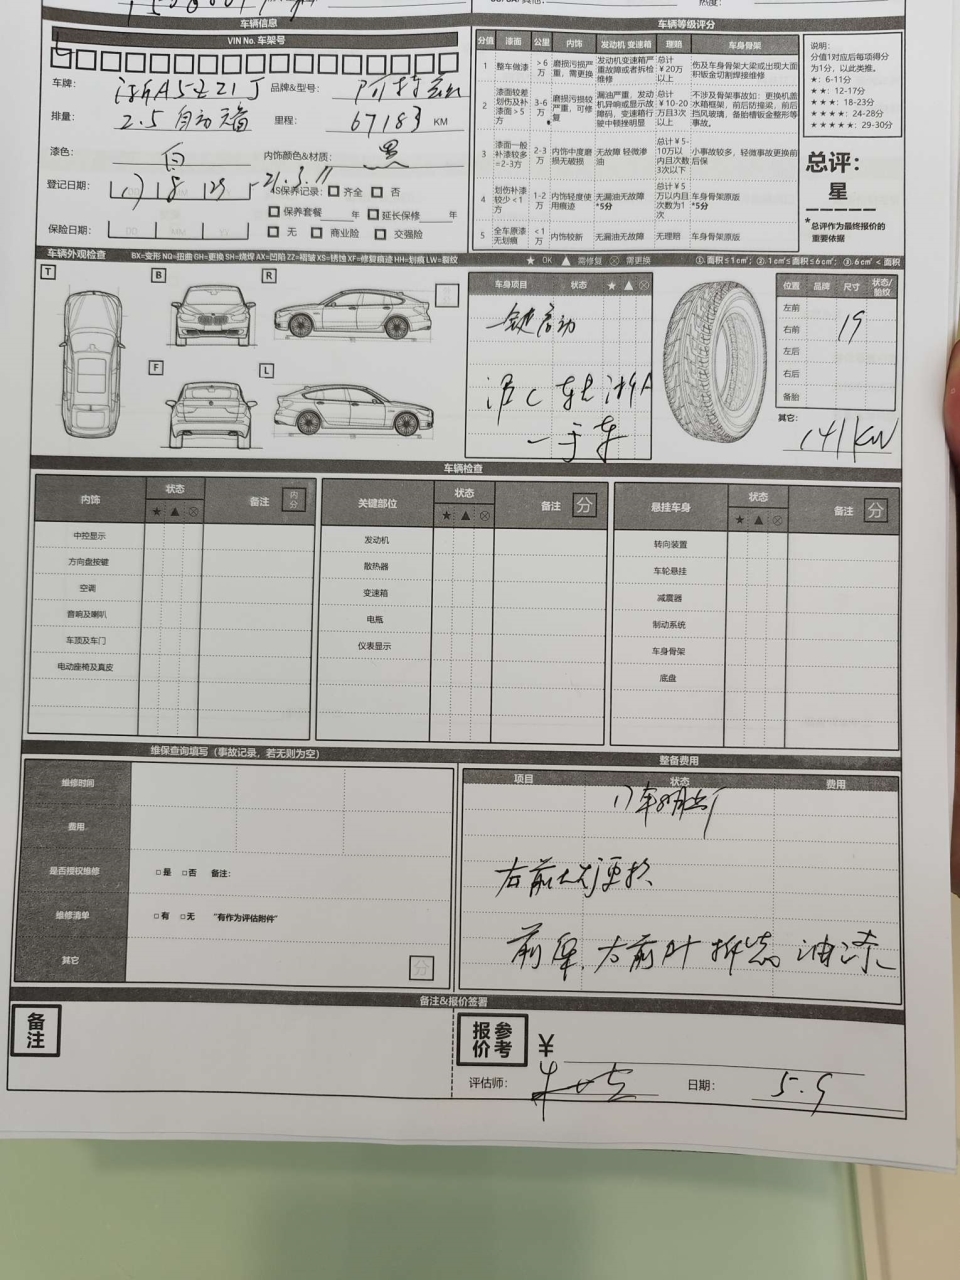 车辆信息
VIN No. 车架号
车牌: 浙A5Z21J 品牌&型号: 阿特兹
排量: 2.5 自动天窗 里程: 67183 KM
漆色: 白 内饰颜色&材质: 黑
登记日期: 21.3.11 4S保养记录: 齐全 否
保养套餐 年 延长保修 年
保险日期: 无 商业险 交强险
车辆等级评分
分值 漆面 公里 内饰 发动机 变速箱 理赔 车身骨架
1 整车做漆 >6万 磨损污损严重，需更换 发动机变速箱严重故障或者拆检维修 总计￥20万以上 伤及车身骨架大梁或出现大面积钣金切割焊接维修
2 漆面较差划伤及补漆面>5方 3-6万 磨损污损较严重，可修复 漏油严重，发动机异响或显示故障码，变速箱行驶中顿挫明显 总计￥10-20万且3次以上 不涉及骨架事故如：更换机盖水箱框架，前后防撞梁，前后挡风玻璃，备胎槽钣金整形等事故。
3 漆面一般补漆较多=2-3方 2-3万 内饰中度磨损无破损 无故障 轻微渗油 总计￥5-10万以内且次数3次以下 小事故较多，轻微事故更换前后保
4 划伤补漆较少<1方 1-2万 内饰轻度使用痕迹 无漏油无故障 *5分 总计￥5万以内且次数为1次 车身骨架原版 *5分
5 全车原漆无划痕 <1万 内饰较新 无漏油无故障 无理赔 车身骨架原版
说明:
分值1对应后每项得分为1分，以此类推。
★: 6-11分
★★: 12-17分
★★★: 18-23分
★★★★: 24-28分
★★★★★: 29-30分
总评:
星
*总评作为最终报价的重要依据
车辆外观检查 BX=变形 NQ=扭曲 GH=更换 SH=烧焊 AX=凹陷 ZZ=褶皱 XS=锈蚀 XF=修复痕迹 HH=划痕 LW=裂纹 ★ OK ▲ 需修复 ⊗ 需更换 ①. 面积≤1cm²; ②. 1cm²≤面积≤6cm²; ③. 6cm²<面积
T B R
F L
车身项目 状态 ★ ▲ ⊗
一键启动
沪C 转 浙A
一手车
位置 品牌 尺寸 状态/胎纹
左前
右前 19
左后
右后
备胎
其它: 141KW
车辆检查
内饰 状态 ★ ▲ ⊗ 备注 内分
中控显示
方向盘按键
空调
音响及喇叭
车顶及车门
电动座椅及真皮
关键部位 状态 ★ ▲ ⊗ 备注 分
发动机
散热器
变速箱
电瓶
仪表显示
悬挂车身 状态 ★ ▲ ⊗ 备注 分
转向装置
车轮悬挂
减震器
制动系统
车身骨架
底盘
维保查询填写（事故记录，若无则为空）
维修时间
费用
是否授权维修 □是 □否 备注:
维修清单 □有 □无 "有作为评估附件"
其它 分
整备费用
项目 状态 费用
右前大灯更换
油漆
备注&报价签署
备注
报价参考 ¥
评估师: 日期: 5.9